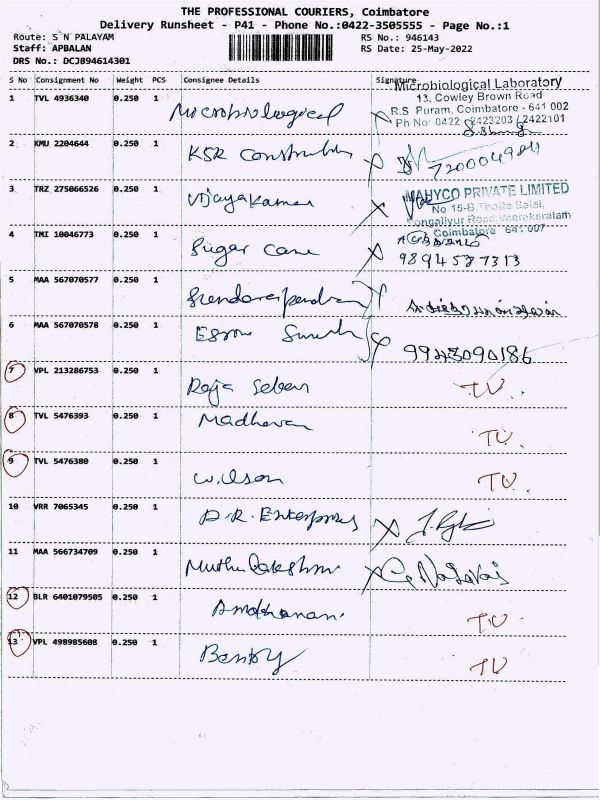 THE PROFESSIONAL COURIERS, Coimbatore
Delivery Runsheet - P41 - Phone No.:0422-3505555 - Page No.:1
Route: S N PALAYAM
Staff: APBALAN
DRS No.: DCJB94614301
RS No.: 946143
RS Date: 25-May-2022
S No Consignment No Weight PCS Consignee Details Signature
1 TVL 4936340 0.250 1 Microbiological
Microbiological Laboratory
13. Cowley Brown Road
R.S. Puram, Coimbatore - 641 002
Ph No: 0422 2423203 / 2422101
2 KMU 2204644 0.250 1 KSR
3 TRZ 275066526 0.250 1 Vijayakumar
MAHYCO PRIVATE LIMITED
No 15-B, Salai,
Road, Veerakeralam
Coimbatore 641 007
4 TMI 10046773 0.250 1 Sugar Cane
9894587313
5 MAA 567070577 0.250 1
6 MAA 567070578 0.250 1
9943090186
7 VPL 213286753 0.250 1 Raja TU
8 TVL 5476393 0.250 1 Madhavan TU
9 TVL 5476380 0.250 1 Wilson TU
10 VRR 7065345 0.250 1 Enterprises
11 MAA 566734709 0.250 1 Muthu Lakshmi
12 BLR 6401079505 0.250 1 TU
13 VPL 498985608 0.250 1 TU